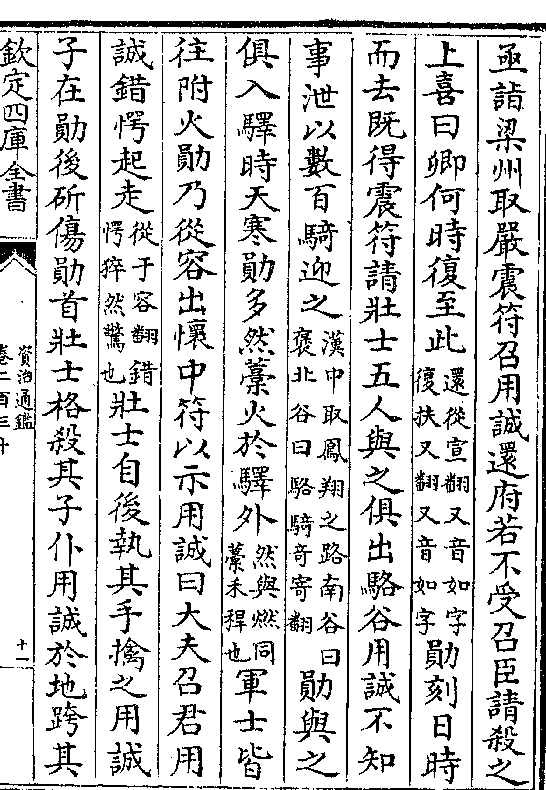 亟詣梁州取嚴震符召用誠還府若不受召臣請殺之
上喜曰卿何時復至此還從宣翻又音如字復扶又翻又音如字勛刻日時
而去既得震符請壯士五人與之俱出駱谷用誠不知
事泄以數百騎迎之漢中取鳳翔之路南谷曰褒北谷曰駱騎奇寄翻勛與之
俱入驛時天寒勛多然藁火於驛外然與燃同藁禾稈也軍士皆
往附火勛乃從容出懷中符以示用誠曰大夫召君用
誠錯愕起走從于容翻錯愕猝然驚也壯士自後執其手擒之用誠
子在勛後斫傷勛首壯士格殺其子仆用誠於地跨其
欽定四庫全書
資治通鑑
卷二百三十
十一